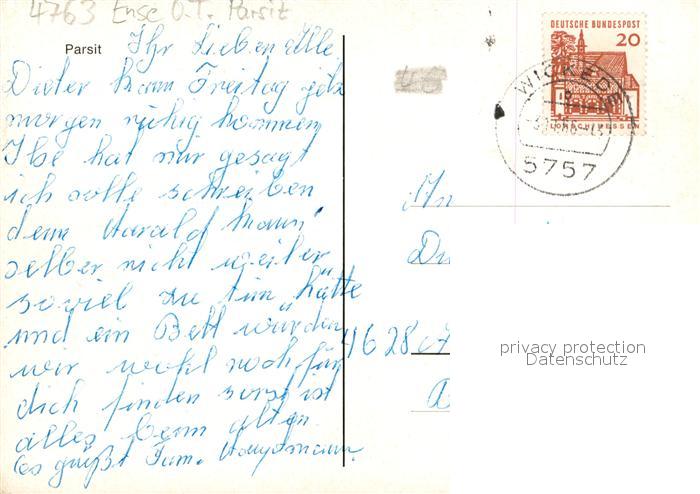 4763 Ense O.T. Parsit
Parsit
Ihr Lieben Alle
Dieter kann Freitag jetz
morgen ruhig kommen
Ilse hat nur gesagt
ich solle schreiben
denn Harald kann
selber nicht weiter
soviel zu tun hätte
und ein Bett würden
wir wohl noch für
dich finden sonst ist
alles beim alten.
es grüßt Fam. Hauptmann
DEUTSCHE BUNDESPOST
20
LORSCH/HESSEN
WICKEDE
5757
An
4628
privacy protection
Datenschutz